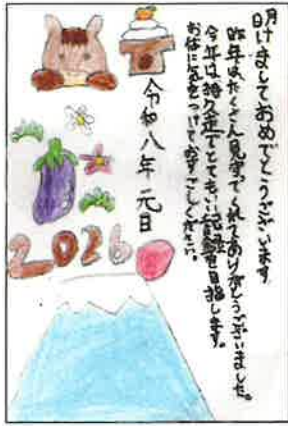 明けましておめでとうございます
昨年は、たくさん見守ってくれてありがとうございました。
今年は持久走でとてもいい記録を目指します。
お体に気をつけておすごしください。
令和八年 元日
2026